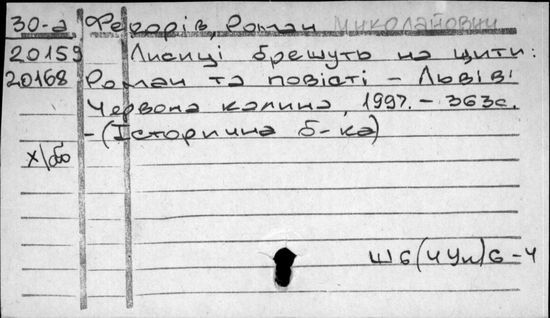 30-а Федорів, Роман Миколайович
20159 Лисиці брешуть на щити:
20168 Роман та повісті – Львів:
Червона калина, 1997. – 363с.
– (Історична б-ка)
х/аб
Ш6(4Ук)6-4